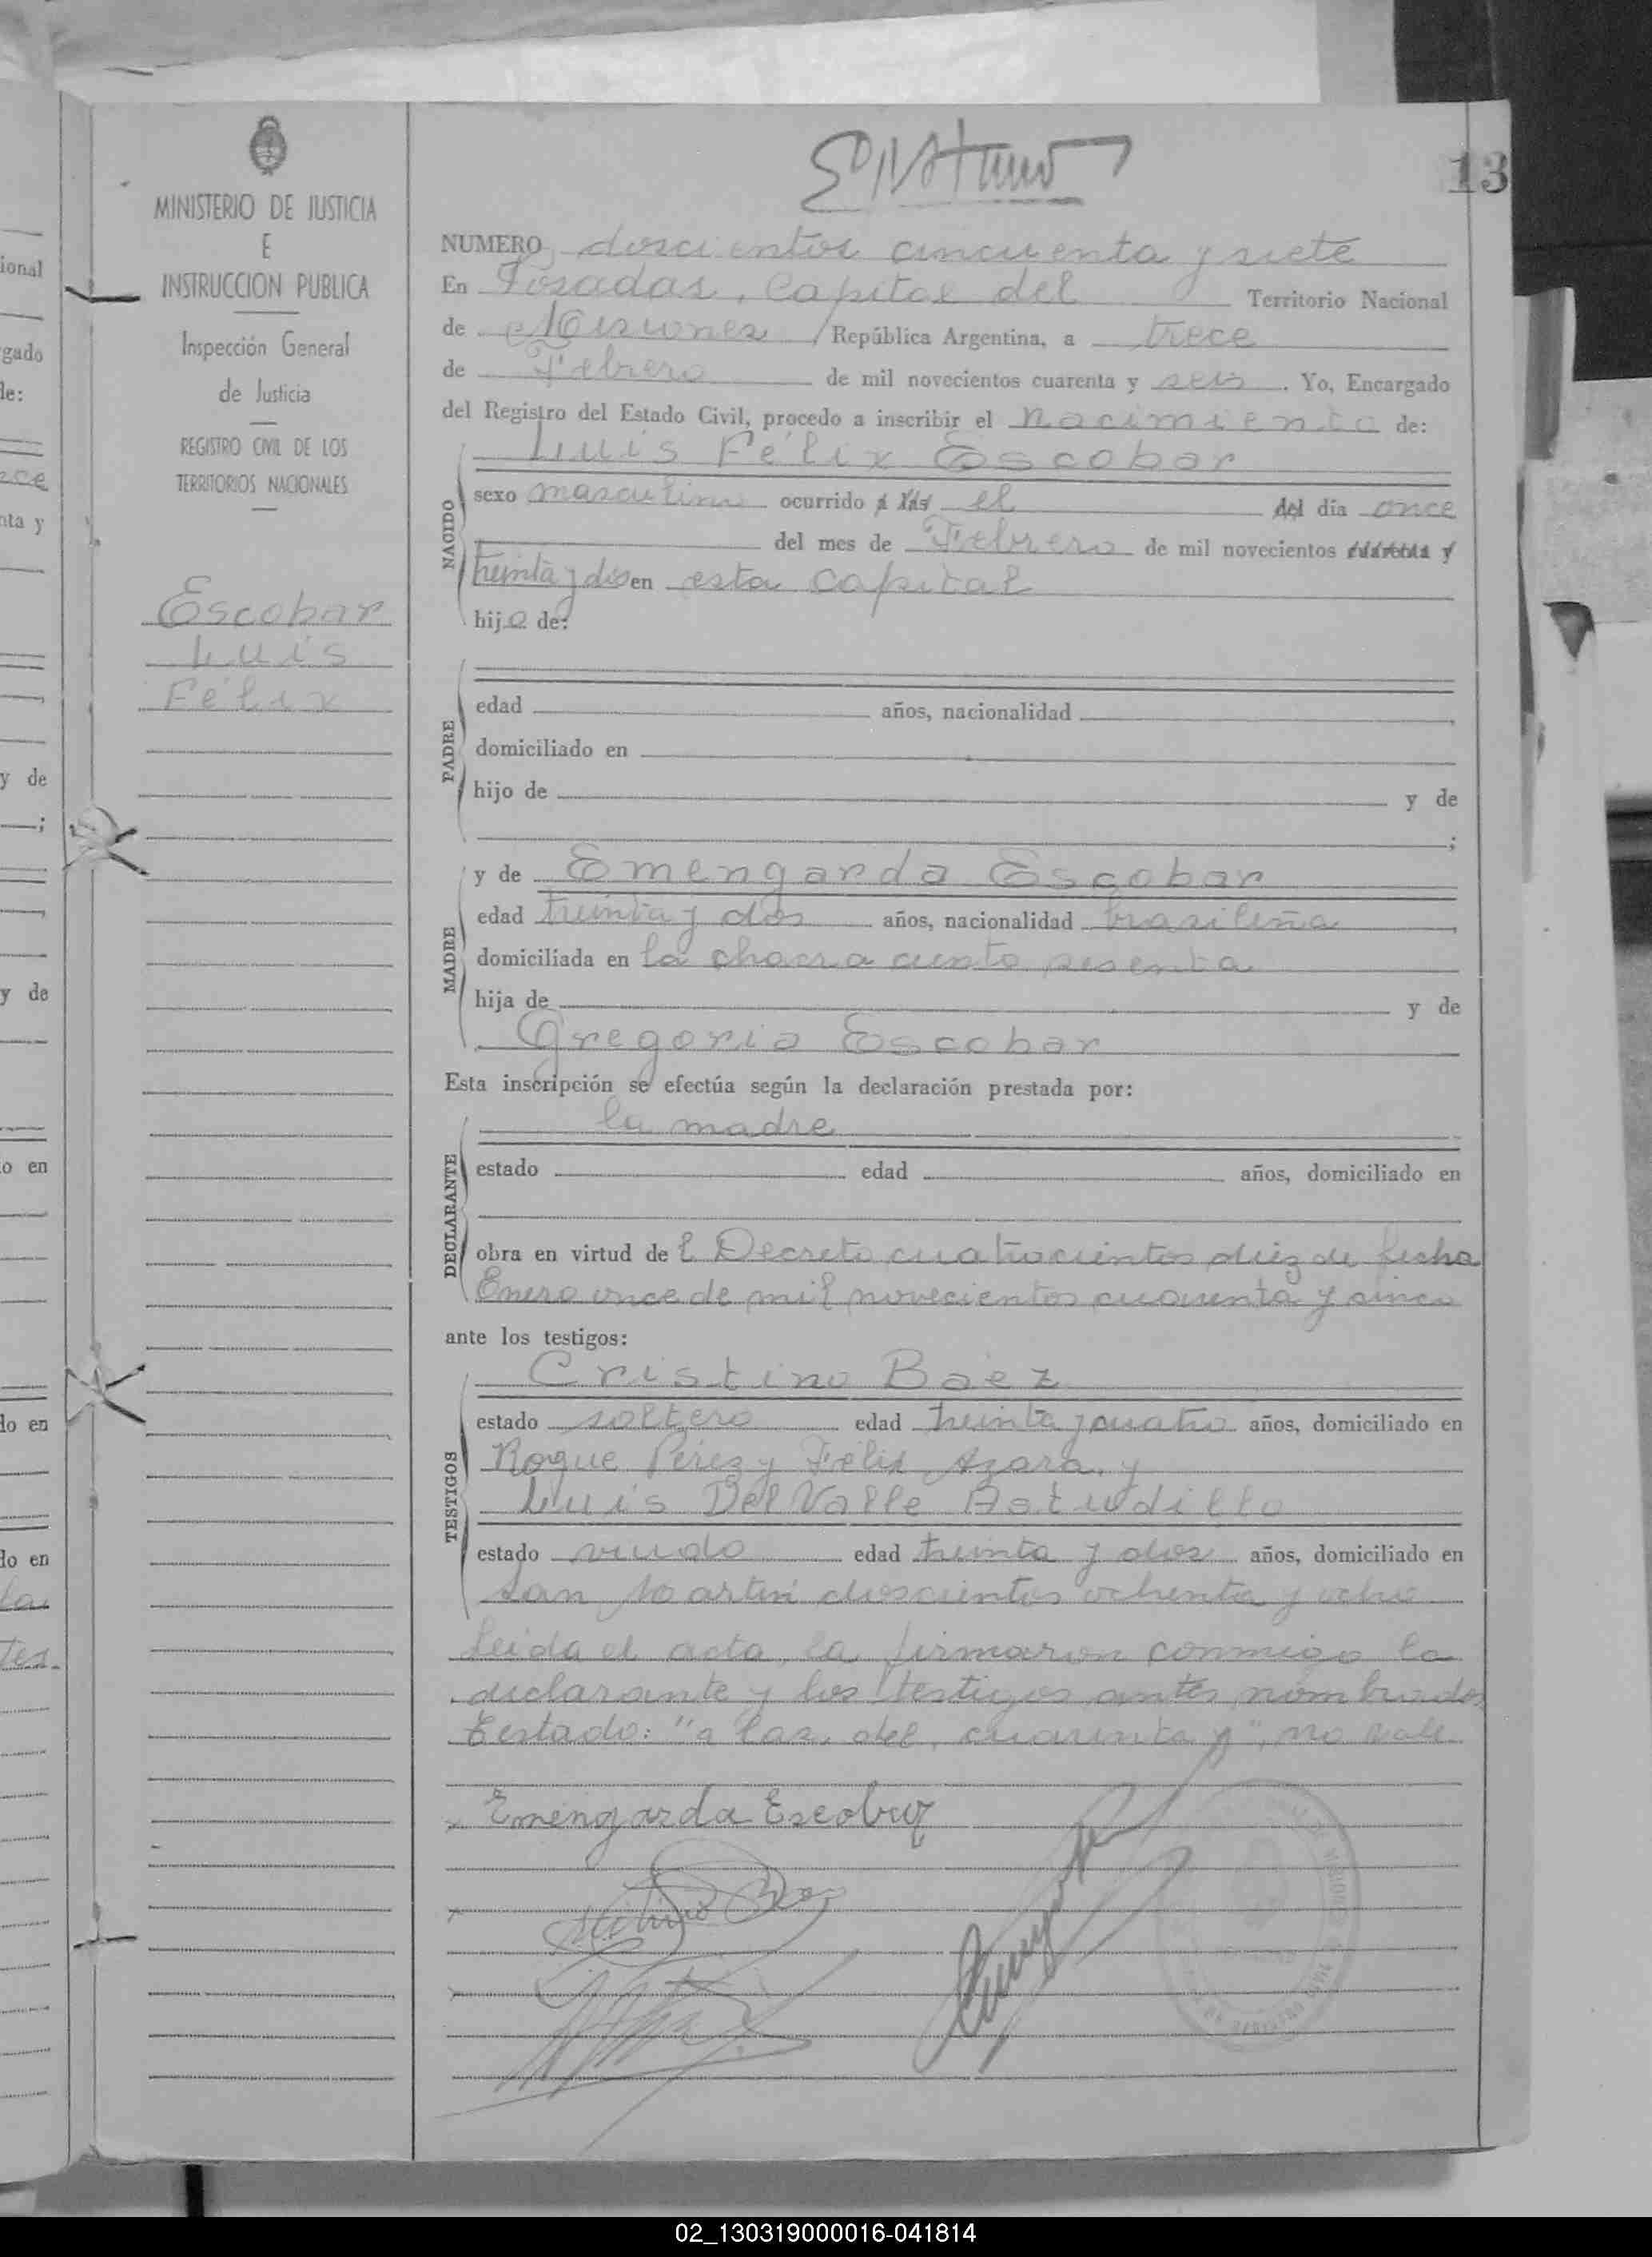 13
MINISTERIO DE JUSTICIA
E
INSTRUCCION PUBLICA
Inspección General
de Justicia
REGISTRO CIVIL DE LOS
TERRITORIOS NACIONALES
Escobar
Luis
Félix
NUMERO doscientos cincuenta y siete
En Posadas, Capital del Territorio Nacional
de Misiones, República Argentina, a trece
de Febrero de mil novecientos cuarenta y seis. Yo, Encargado
del Registro del Estado Civil, procedo a inscribir el nacimiento de:
NACIDO
Luis Félix Escobar
sexo masculino ocurrido a las el del dia once
del mes de Febrero de mil novecientos cuarenta y
treinta y dos en esta capital
hijo de:
PADRE
edad años, nacionalidad
domiciliado en
hijo de y de
;
MADRE
y de Emengarda Escobar
edad treinta y dos años, nacionalidad brasileña
domiciliada en la chacra ciento sesenta
hija de y de
Gregoria Escobar
Esta inscripción se efectúa según la declaración prestada por:
DECLARANTE
la madre
estado edad años, domiciliado en
obra en virtud del Decreto cuatrocientos diez de fecha
Enero once de mil novecientos cuarenta y cinco
ante los testigos:
TESTIGOS
Cristino Baez
estado soltero edad treinta y cuatro años, domiciliado en
Roque Pérez y Félix Azara, y
Luis Del Valle Astudillo
estado viudo edad treinta y dos años, domiciliado en
San Martín doscientos ochenta y ocho
Leida el acta, la firmaron conmigo la
declarante y los testigos antes nombrados
Testado: "a las, del, cuarenta y", no vale
Emengarda Escobar
02_130319000016-041814